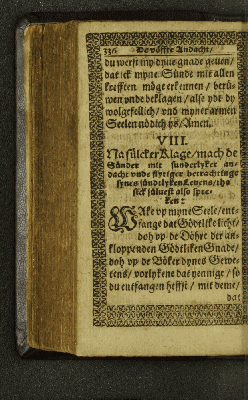 336 De vöffte Andacht/
du werst my dyne gnade geuen/
dat ick myne Sünde mit allen
krefften möge erkennen / berü-
wen vnde beklagen / alse ydt dy
wolgefellich / vnd myner armen
Seelen nödich ys / Amen.
VIII.
Na sülcker Klage / mach de
Sünder mit sunderlyker an-
dacht vnde flytiger betrachtinge
synes sündtlyken Leuens / tho
sick süluest also spre-
ken:
WAke vp myne Seele / ent-
fange dat Gödtlike licht/
doh vp de Döhre der an-
kloppenden Gödtliken Gnade/
doh vp de Böker dynes Gewe-
tens / vorlykene dat yennige / so
du entfangen heffst / mit deme/
dat